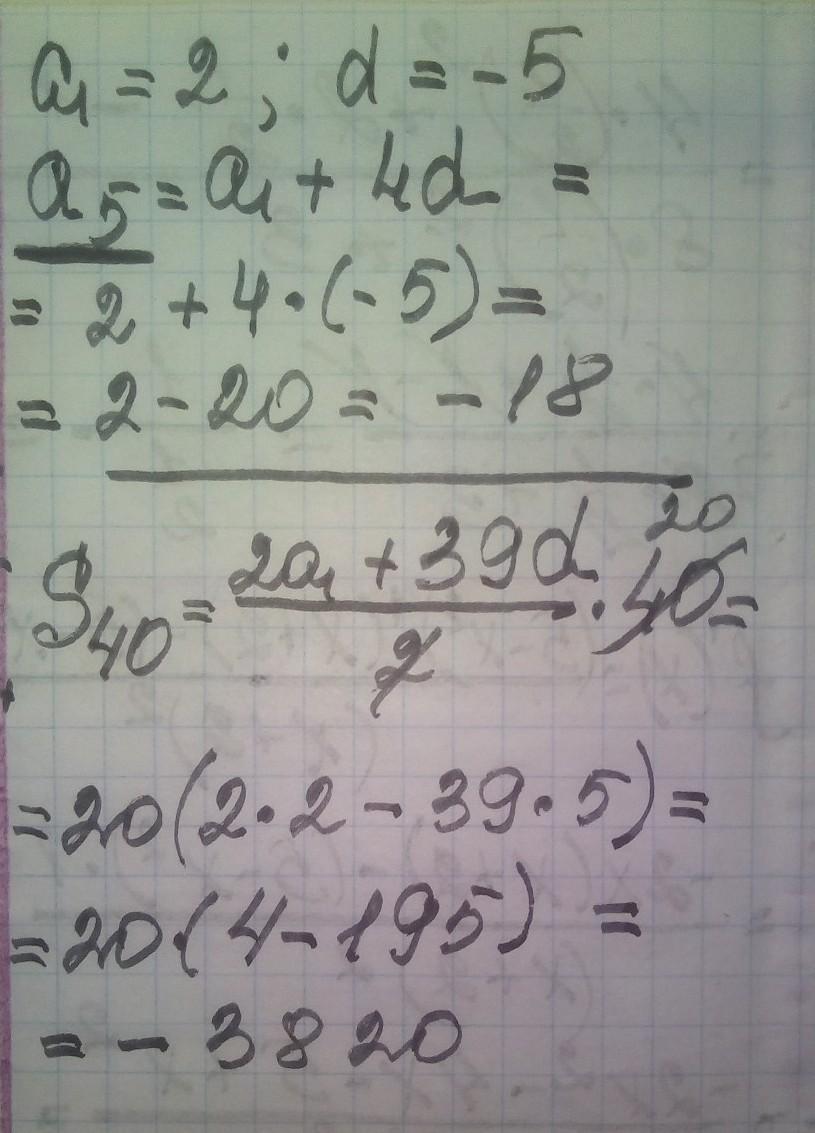 a₁ = 2 ; d = -5
a₅ = a₁ + 4d =
= 2 + 4·(-5) =
= 2 - 20 = -18
20
2a₁ + 39d
S₄₀ = ——— · 40 =
2
= 20(2·2 - 39·5) =
= 20·(4 - 195) =
= - 3820